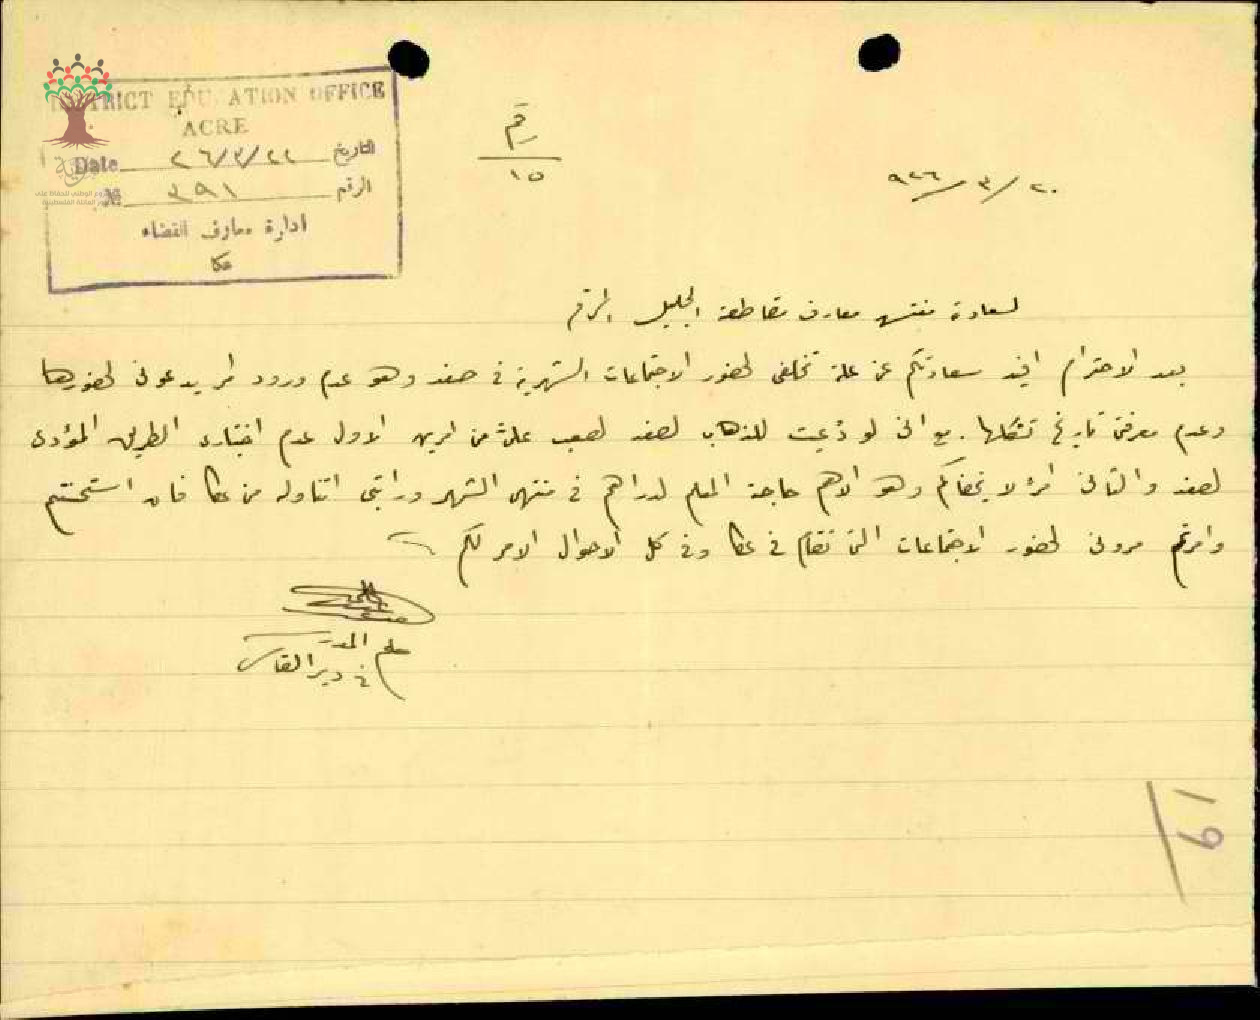 DISTRICT EDUCATION OFFICE
ACRE
Date ٢٦/٣/٢٢ التاريخ
№ ٣٩١ الرقم
ادارة معارف القضاء
عكا
رقم
١٥
٢٠/٣/٩٢٦
لسعادة مفتش معارف مقاطعة الجليل
بعد الاحترام افيد سعادتكم عن علة تخلفي لحضور الاجتماعات الشهرية في صفد وهو عدم ورود امر يدعوني لحضورها
وعدم معرفتي تاريخ تشكلها. مع اني لو دُعيت للذهاب لصفد لصعب علي من امرين الاول عدم اختباري الطريق المؤدي
لصفد والثاني امر لا يخفاكم وهو الاهم حاجة المعلم لدراهم في منتهى الشهر وراتبي اتناوله من عكا فان استحسنتم
وامرتم مروني لحضور الاجتماعات التي تقام في عكا وفي كل الاحوال الامر لكم
معلم المدرسة
في دير القاسي
19